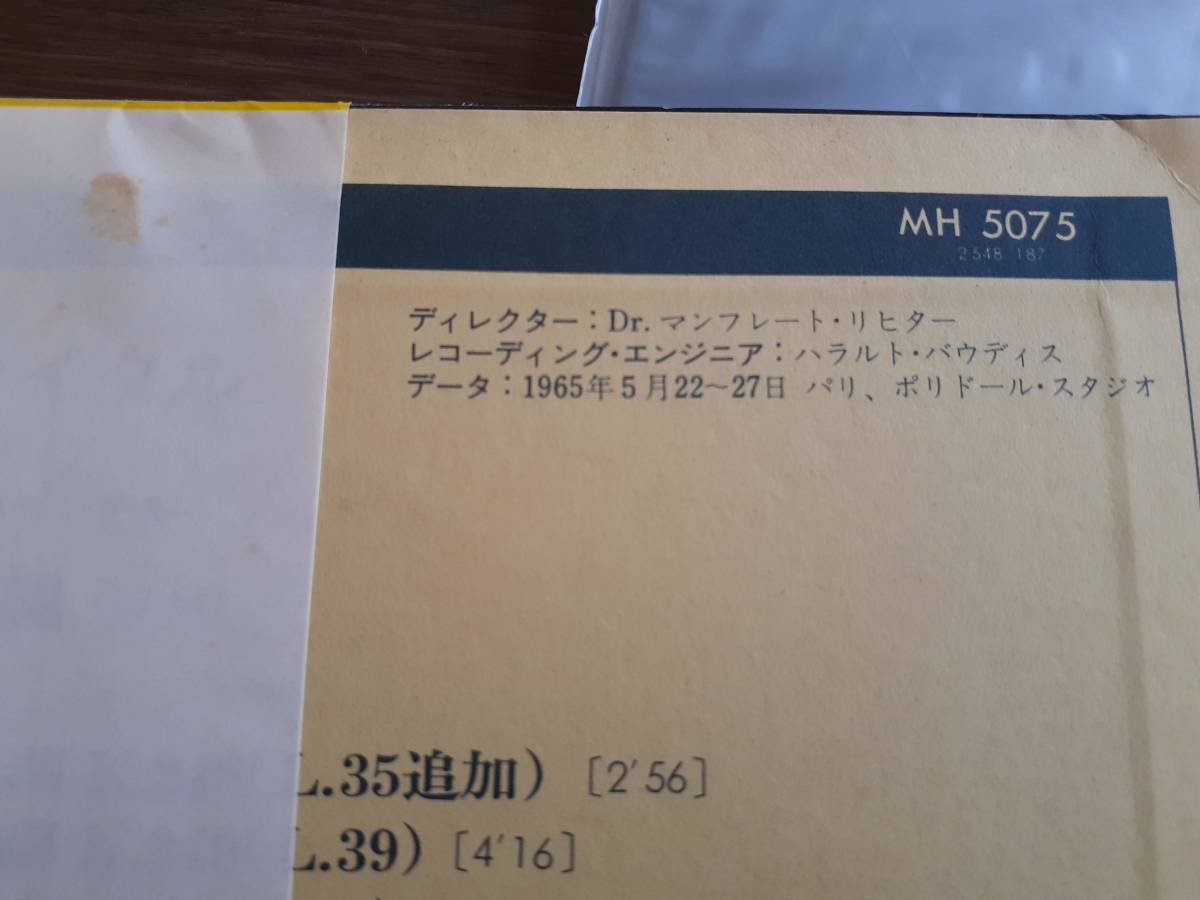 MH 5075
2548 187
ディレクター：Dr. マンフレート・リヒター
レコーディング・エンジニア：ハラルト・バウディス
データ：1965年5月22〜27日 パリ、ポリドール・スタジオ
L.35追加）［2′56］
L.39）［4′16］